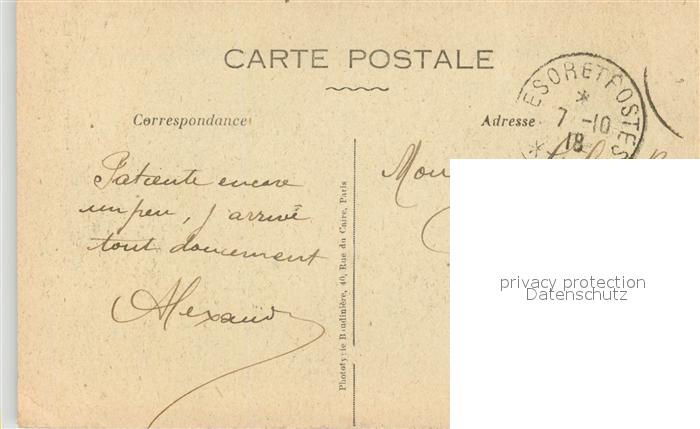 CARTE POSTALE
ESORETPOSTES
*
7 -10
18
*
Correspondance
Adresse
Patiente encore
un peu, j'arrive
tout doucement
Phototypie Baudinière, 40, Rue du Caire, Paris
privacy protection
Datenschutz